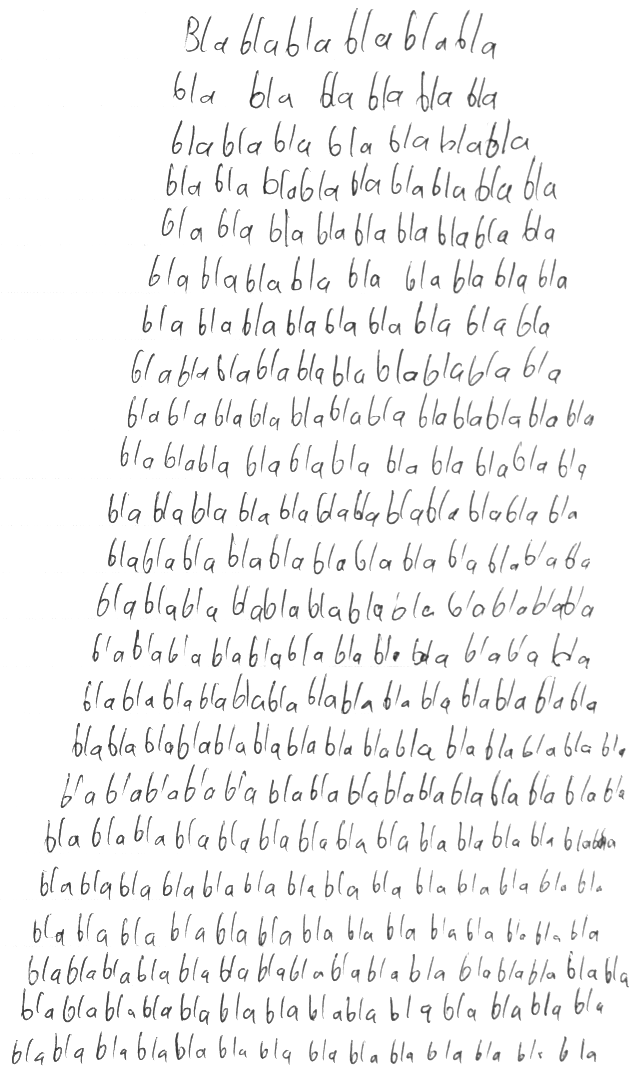 Bla bla bla bla bla bla
bla bla bla bla bla bla
bla bla bla bla bla bla bla
bla bla bla bla bla bla bla bla bla
bla bla bla bla bla bla bla bla bla
bla bla bla bla bla bla bla bla bla
bla bla bla bla bla bla bla bla bla
bla bla bla bla bla bla bla bla bla bla
bla bla bla bla bla bla bla bla bla bla bla bla
bla bla bla bla bla bla bla bla bla bla bla
bla bla bla bla bla bla bla bla bla bla bla bla
bla bla bla bla bla bla bla bla bla bla bla bla
bla bla bla bla bla bla bla bla bla bla bla bla
bla bla bla bla bla bla bla bla bla bla bla bla
bla bla bla bla bla bla bla bla bla bla bla bla bla bla
bla bla bla bla bla bla bla bla bla bla bla bla bla bla bla
bla bla bla bla bla bla bla bla bla bla bla bla bla bla bla
bla bla bla bla bla bla bla bla bla bla bla bla bla bla
bla bla bla bla bla bla bla bla bla bla bla bla bla bla
bla bla bla bla bla bla bla bla bla bla bla bla bla
bla bla bla bla bla bla bla bla bla bla bla bla bla bla bla bla
bla bla bla bla bla bla bla bla bla bla bla bla bla bla
bla bla bla bla bla bla bla bla bla bla bla bla bla bla